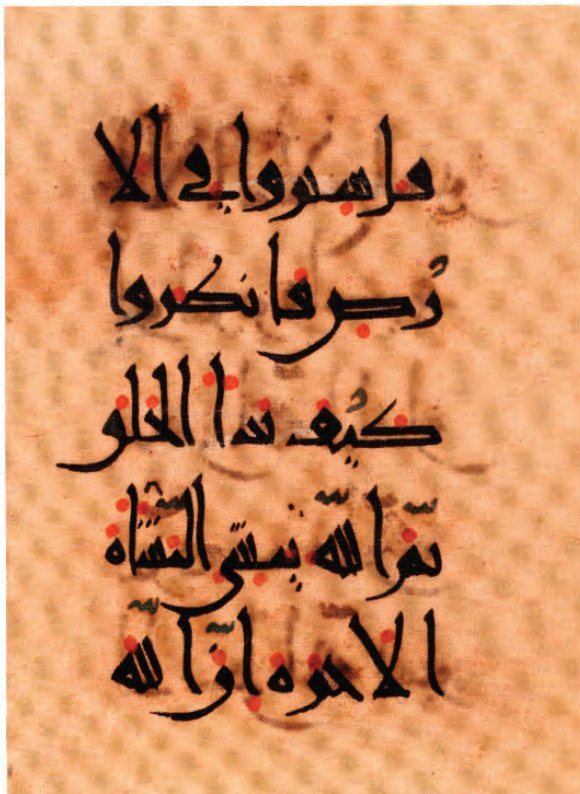 قل سيروا في الا
رض فانظروا
كيف بدا الخلق
ثمّ اللّه ينشى النّشاة
الاخرة انّ اللّه